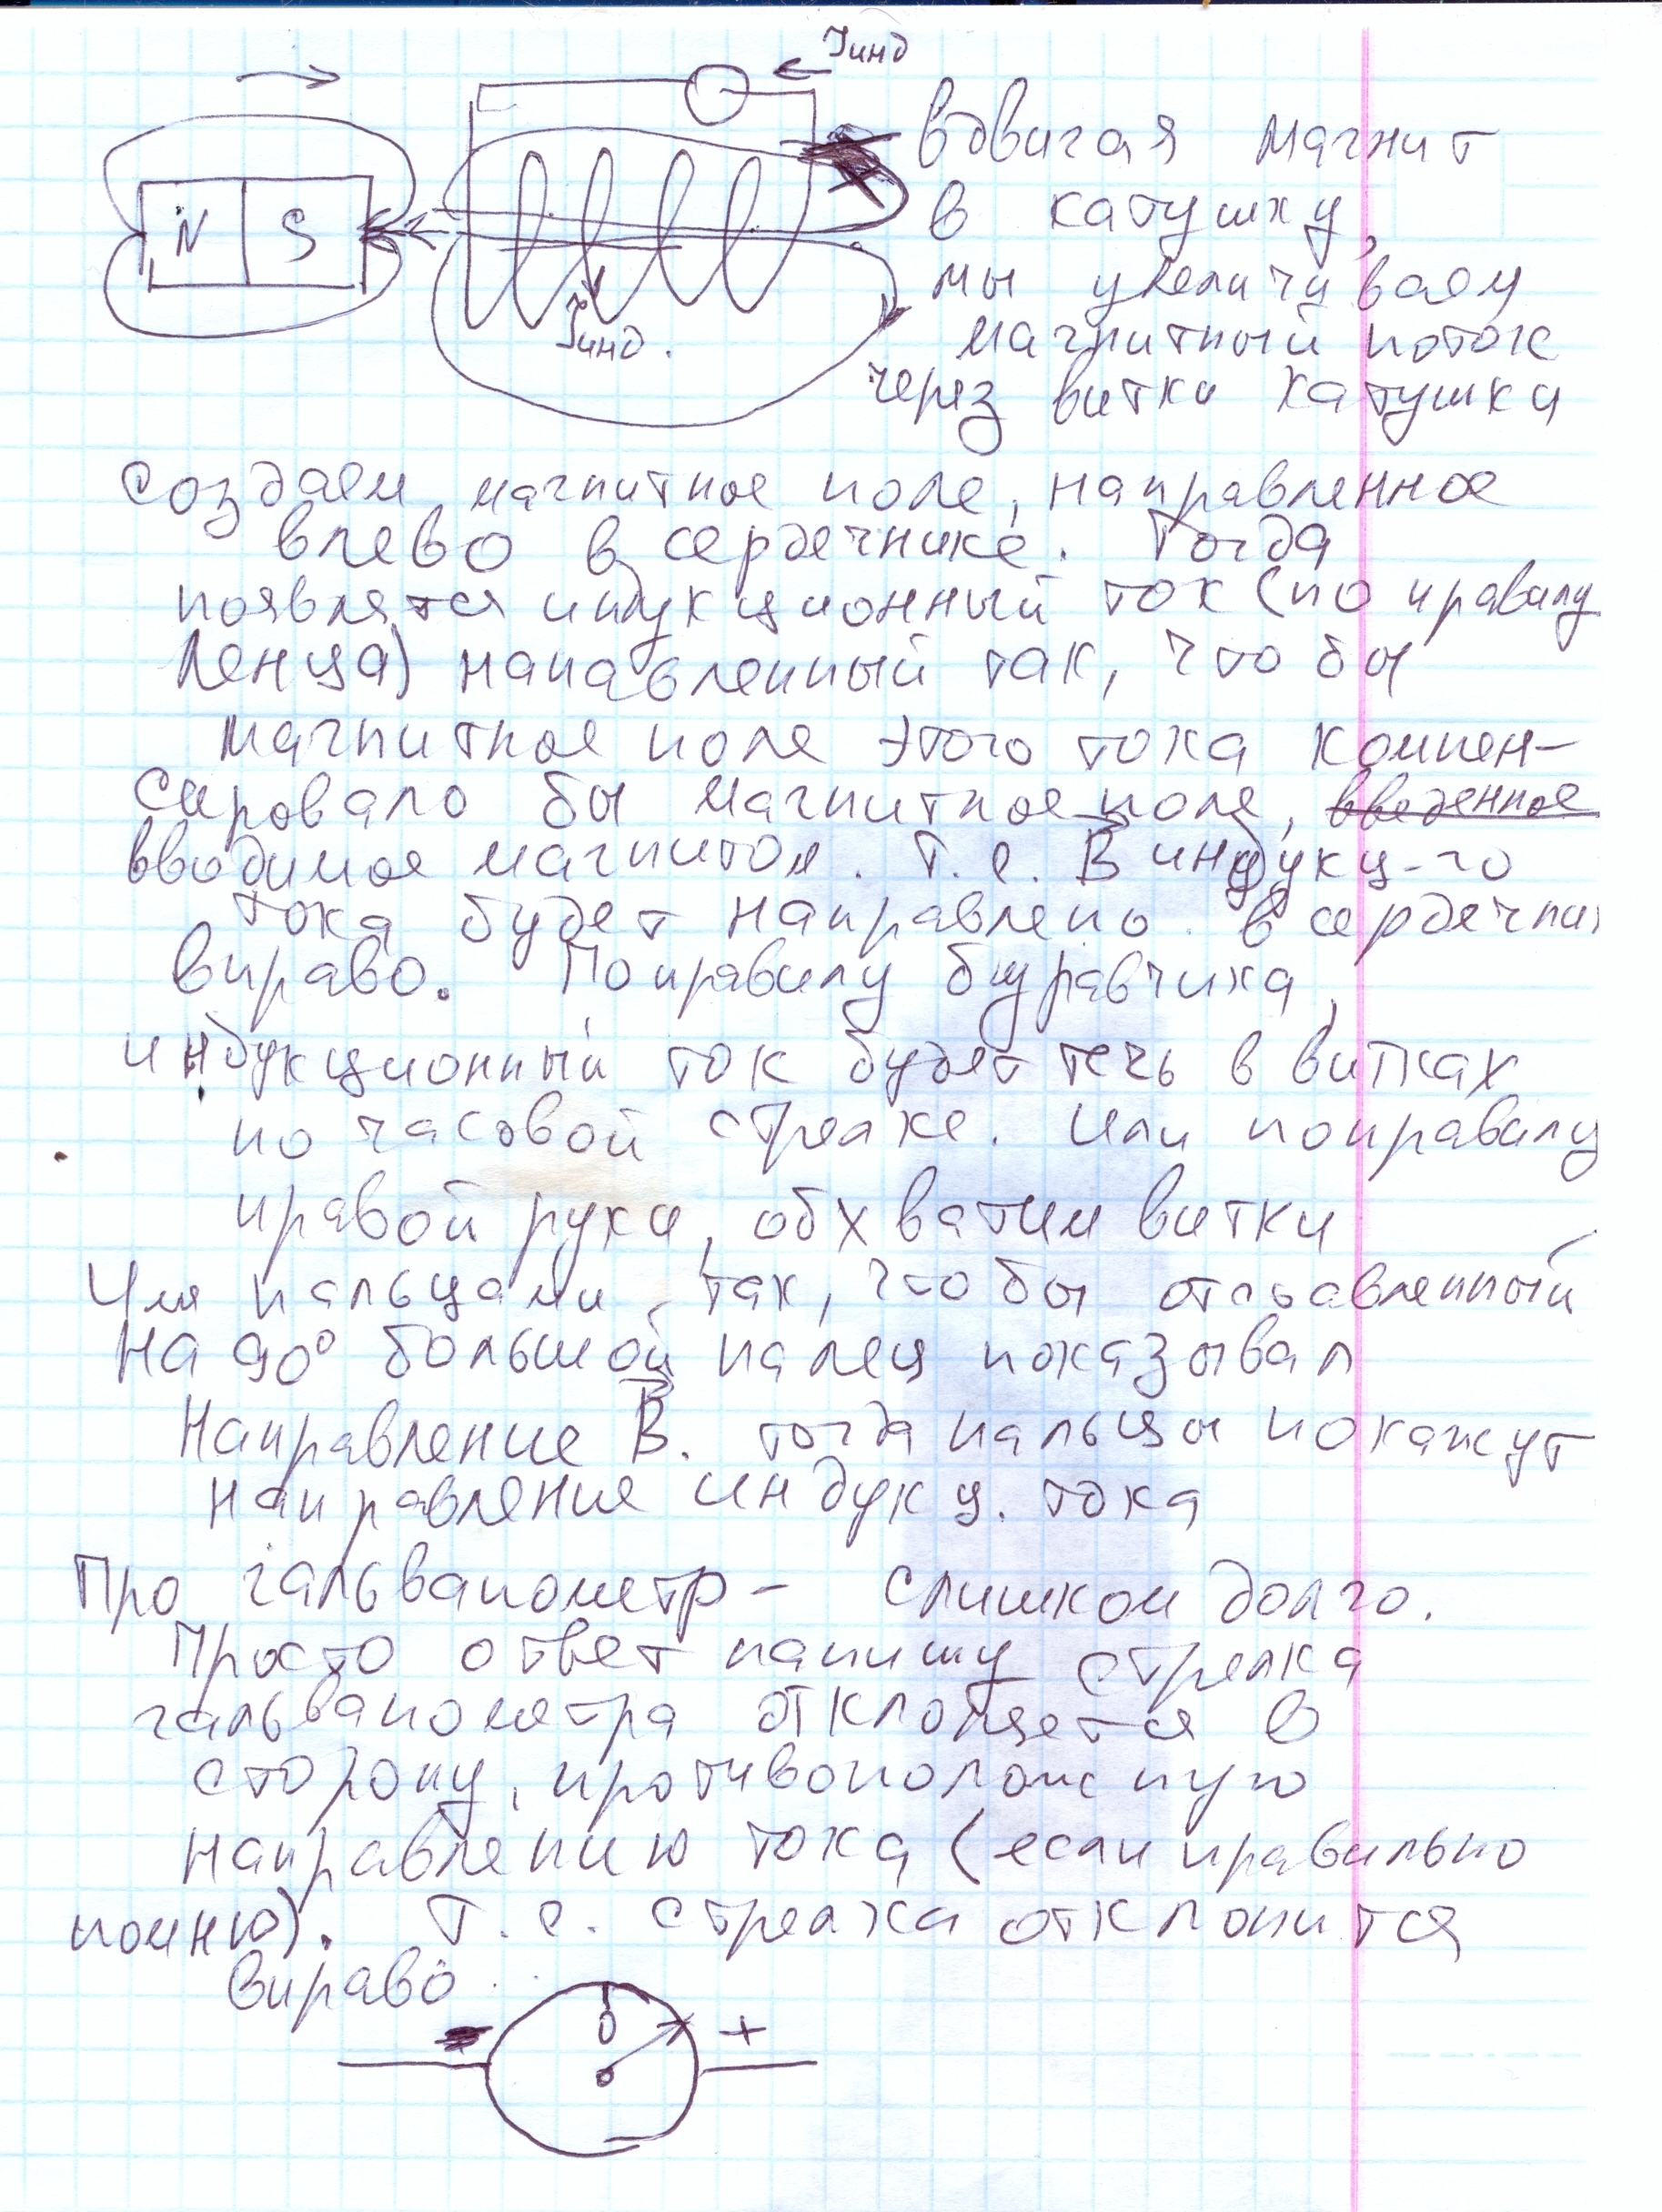 Iинд
N S
Iинд.
вдвигая магнит
в катушку,
мы увеличиваем
магнитный поток
через витки катушки
создаем магнитное поле, направленное
влево в сердечнике. Тогда
появлятся индукционный ток (по правилу
Ленца) напавленный так, что бы
магнитное поле этого тока компен-
сировало бы магнитное поле, введенное
вводимое магнитом. Т.е. B индукц-го
тока будет направлено в сердечник
вправо. По правилу буравчика,
индукционный ток будет течь в витках
по часовой стрелке. Или по правилу
правой руки, обхватим витки
пальцами, так, что бы отставленный
на 90° большой палец показывал
направление B. тогда пальцы покажут
направление индукц. тока
Про гальванометр - слишком долго.
Просто ответ напишу стрелка
гальванометра отклоняется в
сторону, противоположную
направлению тока (если правильно
помню). Т.е. стрелка отклонится
вправо
0 +